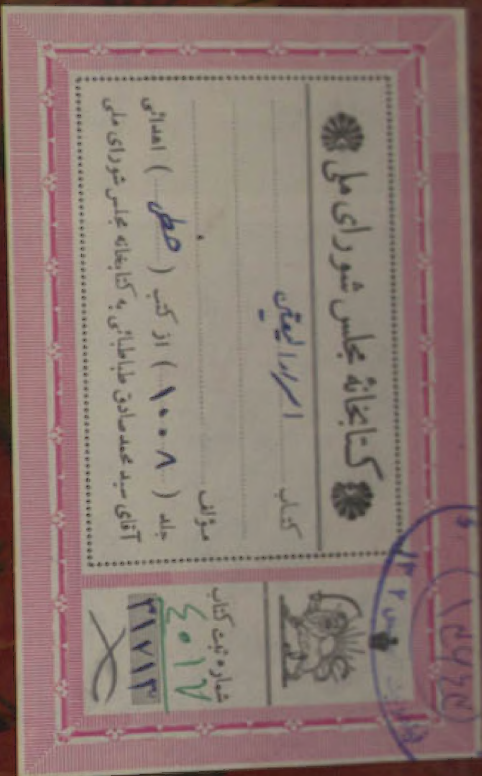 کتابخانهٔ مجلس شورای ملی
کتاب اسرار الیقین
مؤلف
جلد (۱۰۰۸) از کتب (خطی) اهدائی
آقای سید محمد صادق طباطبائی به کتابخانه مجلس شورای ملی
شماره ثبت کتاب
۴۰۱۷
۳۱۷۱۳